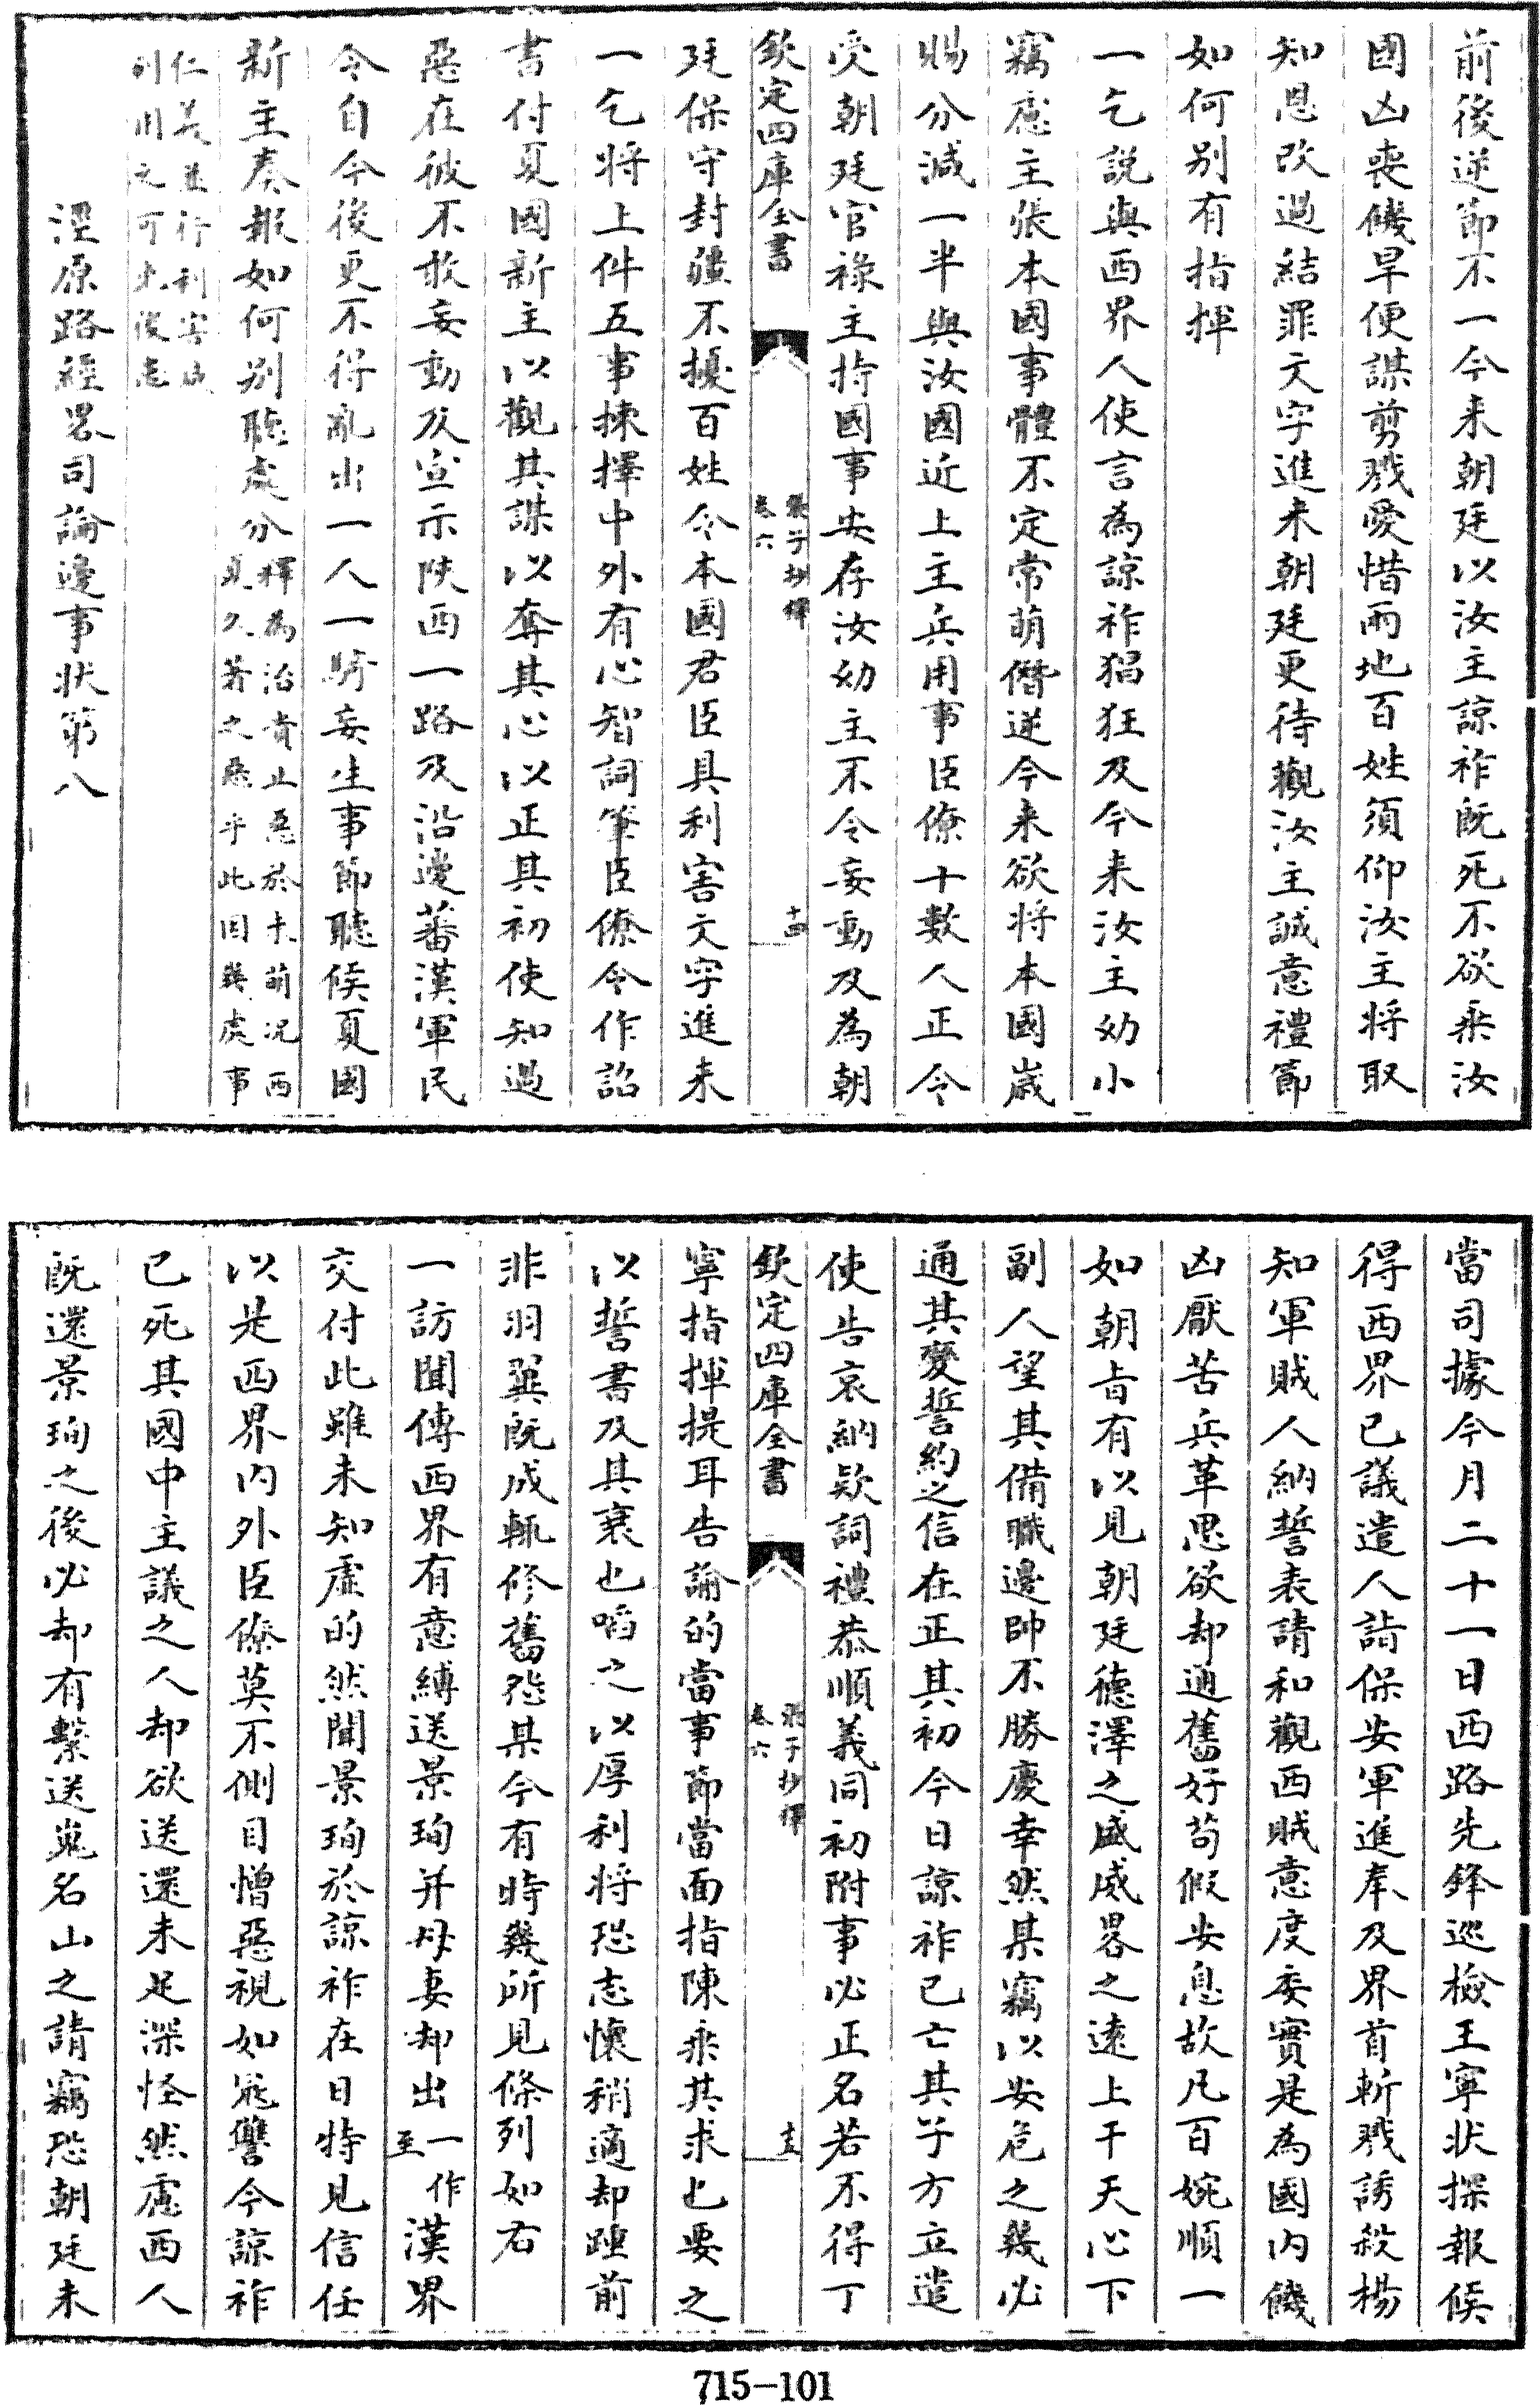 前後逆節不一今来朝廷以汝主諒祚既死不欲乘汝
國凶喪饑旱便謀剪戮愛惜兩地百姓須仰汝主將取
知恩改過結罪文字進来朝廷更待觀汝主誠意禮節
如何别有指揮
一乞説與西界人使言為諒祚猖狂及今来汝主幼小
竊慮主張本國事體不定常萌僭逆今来欲將本國嵗
賜分減一半與汝國近上主兵用事臣僚十數人正令
受朝廷官祿主持國事安存汝幼主不令妄動及為朝
欽定四庫全書
張子抄釋
卷六
十四
廷保守封疆不擾百姓令本國君臣具利害文字進来
一乞將上件五事揀擇中外有心智詞筆臣僚令作詔
書付夏國新主以觀其謀以奪其心以正其初使知過
惡在彼不敢妄動及宣示陜西一路及沿邊蕃漢軍民
令自今後更不得亂出一人一騎妄生事節聽候夏國
新主奏報如何别聽處分釋為治貴止惡於未萌況西
夏久著之惡乎此因幾處事
仁義並行利害
利用之可光後
涇原路經畧司論邊事狀第八
當司據今月二十一日西路先鋒巡檢王寧狀探報候
得西界已議遣人詣保安軍進奉及界首斬戮誘殺楊
知軍賊人納誓表請和觀西賊意度委實是為國内饑
凶厭苦兵革思欲却通舊好茍假安息故凡百婉順一
如朝㫖有以見朝廷德澤之盛威畧之逺上干天心下
副人望其備職邊帥不勝慶幸然某竊以安危之幾必
通其變誓約之信在正其初今日諒祚已亡其子方立遣
使告哀納欵詞禮恭順義同初附事必正名若不得丁
欽定四庫全書
張子抄釋
卷六
十五
寧指揮提耳告諭的當事節當面指陳乘其求也要之
以誓書及其衰也啗之以厚利將恐志懷稍適却踵前
非羽翼既成輒修舊怨某今有時幾所見條列如右
一訪聞傳西界有意縛送景珣并母妻却出一作至漢界
交付此雖未知虚的然聞景珣於諒祚在日特見信任
以是西界内外臣僚莫不側目憎惡視如寃讐今諒祚
已死其國中主議之人却欲送還未足深怪然慮西人
既還景珣之後必却有繫送嵬名山之請竊恐朝廷未
715-101